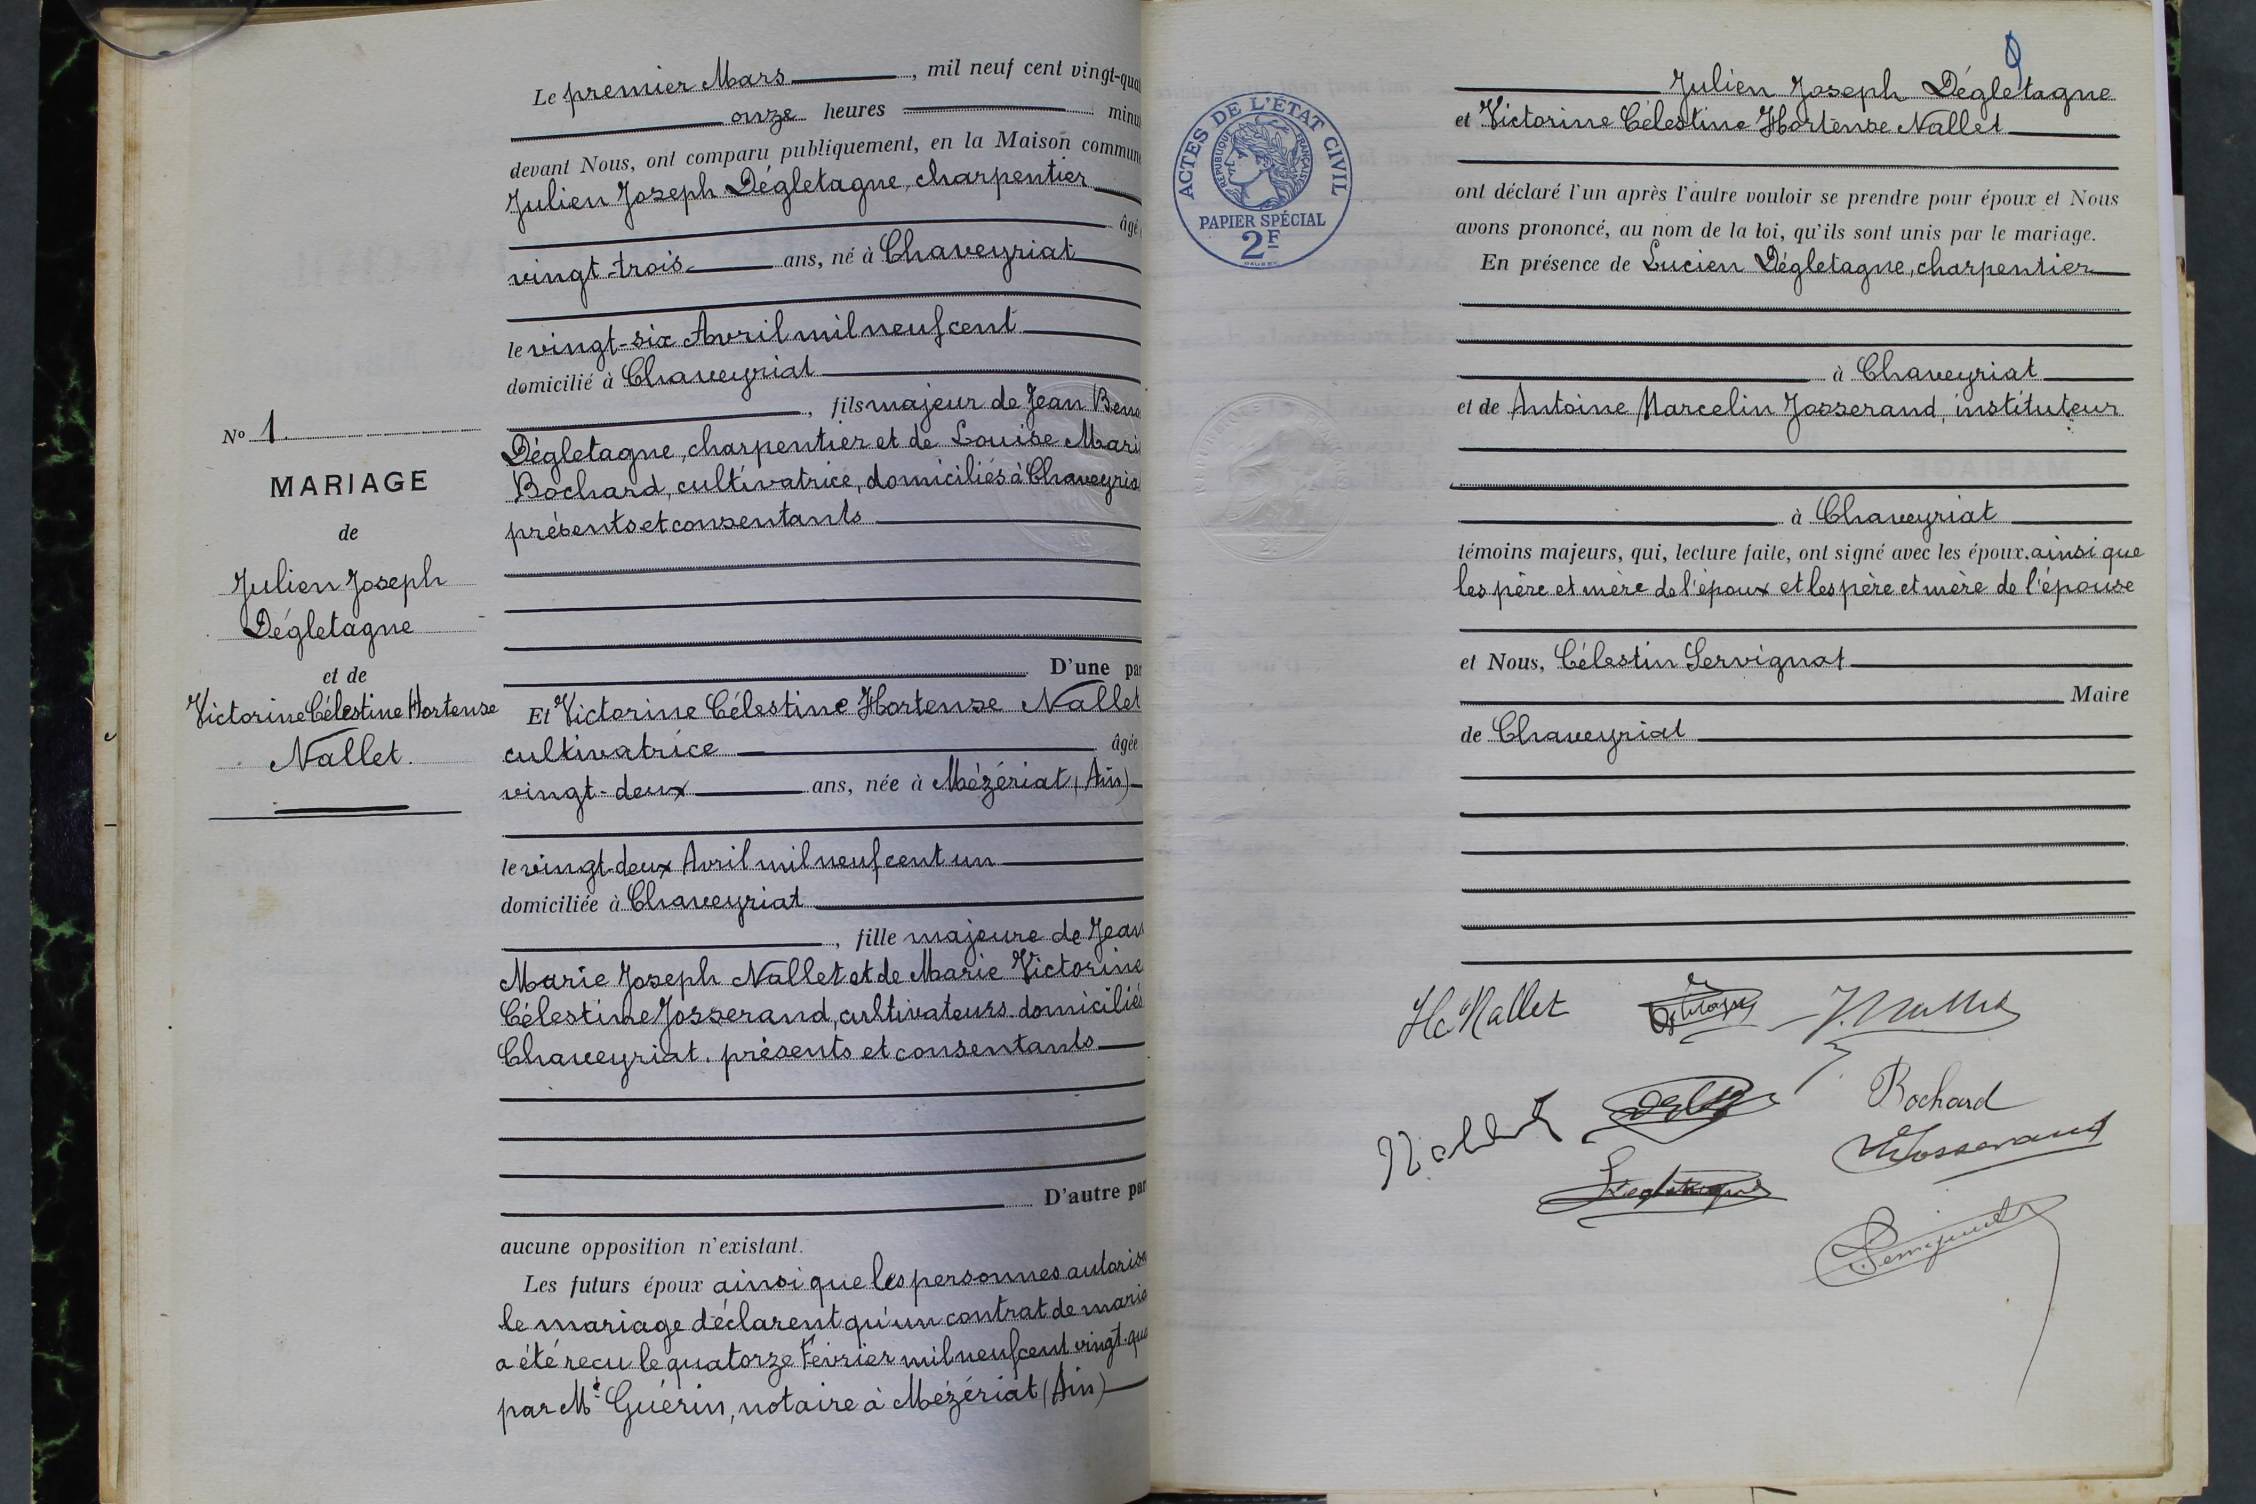 Le premier Mars, mil neuf cent vingt-qua
onze heures minu
devant Nous, ont comparu publiquement, en la Maison commun
Julien Joseph Dégletagne, charpentier
âgé
vingt-trois ans, né à Chaveyriat
le vingt-six Avril mil neuf cent
domicilié à Chaveyriat
, fils majeur de Jean Beno
Dégletagne, charpentier et de Louise Mari
Bochard, cultivatrice, domiciliés à Chaveyria
présents et consentants
D'une par
Et Victorine Célestine Hortense Nallet
cultivatrice âgée
vingt-deux ans, née à Mézériat (Ain)
le vingt-deux Avril mil neuf cent un
domiciliée à Chaveyriat
, fille majeure de Jean
Marie Joseph Nallet et de Marie Victorine
Célestine Josserand, cultivateurs domiciliés
Chaveyriat. présents et consentants
D'autre par
aucune opposition n'existant.
Les futurs époux ainsi que les personnes autoris
le mariage déclarent qu'un contrat de maria
a été reçu le quatorze Février mil neuf cent vingt-qua
par Me Guérin, notaire à Mézériat (Ain)
No 1
MARIAGE
de
Julien Joseph
Dégletagne
et de
Victorine Célestine Hortense
Nallet.
ACTES DE L'ÉTAT CIVIL
RÉPUBLIQUE FRANÇAISE
PAPIER SPÉCIAL
2F
Julien Joseph Dégletagne
et Victorine Célestine Hortense Nallet
ont déclaré l'un après l'autre vouloir se prendre pour époux et Nous
avons prononcé, au nom de la loi, qu'ils sont unis par le mariage.
En présence de Lucien Dégletagne, charpentier
à Chaveyriat
et de Antoine Marcelin Josserand, instituteur
à Chaveyriat
témoins majeurs, qui, lecture faite, ont signé avec les époux. ainsi que
les père et mère de l'époux et les père et mère de l'épouse
et Nous, Célestin Servignat
Maire
de Chaveyriat
Nallet
Bochard
Josserand